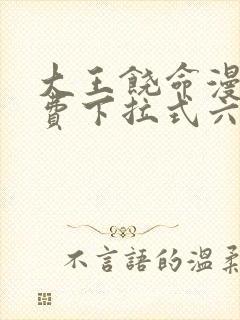 大王饶命漫
费下拉式六
不言語的温柔